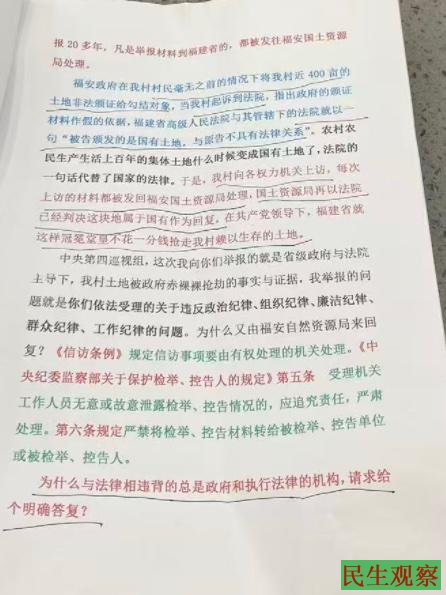 报 20 多年，凡是举报材料到福建省的，都被发往福安国土资源
局处理。
福安政府在我村村民毫无之前的情况下将我村近 400 亩的
土地非法颁证给勾结对象，当我村起诉到法院，指出政府的颁证
材料作假的依据，福建省高级人民法院与其管辖下的法院就以一
句“被告颁发的是国有土地，与原告不具有法律关系”。农村农
民生产生活上百年的集体土地什么时候变成国有土地了，法院的
一句话代替了国家的法律。于是，我村向各权力机关上访，每次
上访的材料都被发回福安国土资源局处理，国土资源局再以法院
已经判决这块地属于国有作为回复，在共产党领导下，福建省就
这样冠冕堂皇不花一分钱抢走我村赖以生存的土地。
中央第四巡视组，这次我向你们举报的就是省级政府与法院
主导下，我村土地被政府赤裸裸抢劫的事实与证据，我举报的问
题就是你们依法受理的关于违反政治纪律、组织纪律、廉洁纪律、
群众纪律、工作纪律的问题。为什么又由福安自然资源局来回
复？《信访条例》规定信访事项要由有权处理的机关处理。《中
央纪委监察部关于保护检举、控告人的规定》第五条 受理机关
工作人员无意或故意泄露检举、控告情况的，应追究责任，严肃
处理。第六条规定严禁将检举、控告材料转给被检举、控告单位
或被检举、控告人。
为什么与法律相违背的总是政府和执行法律的机构，请求给
个明确答复？
民生观察